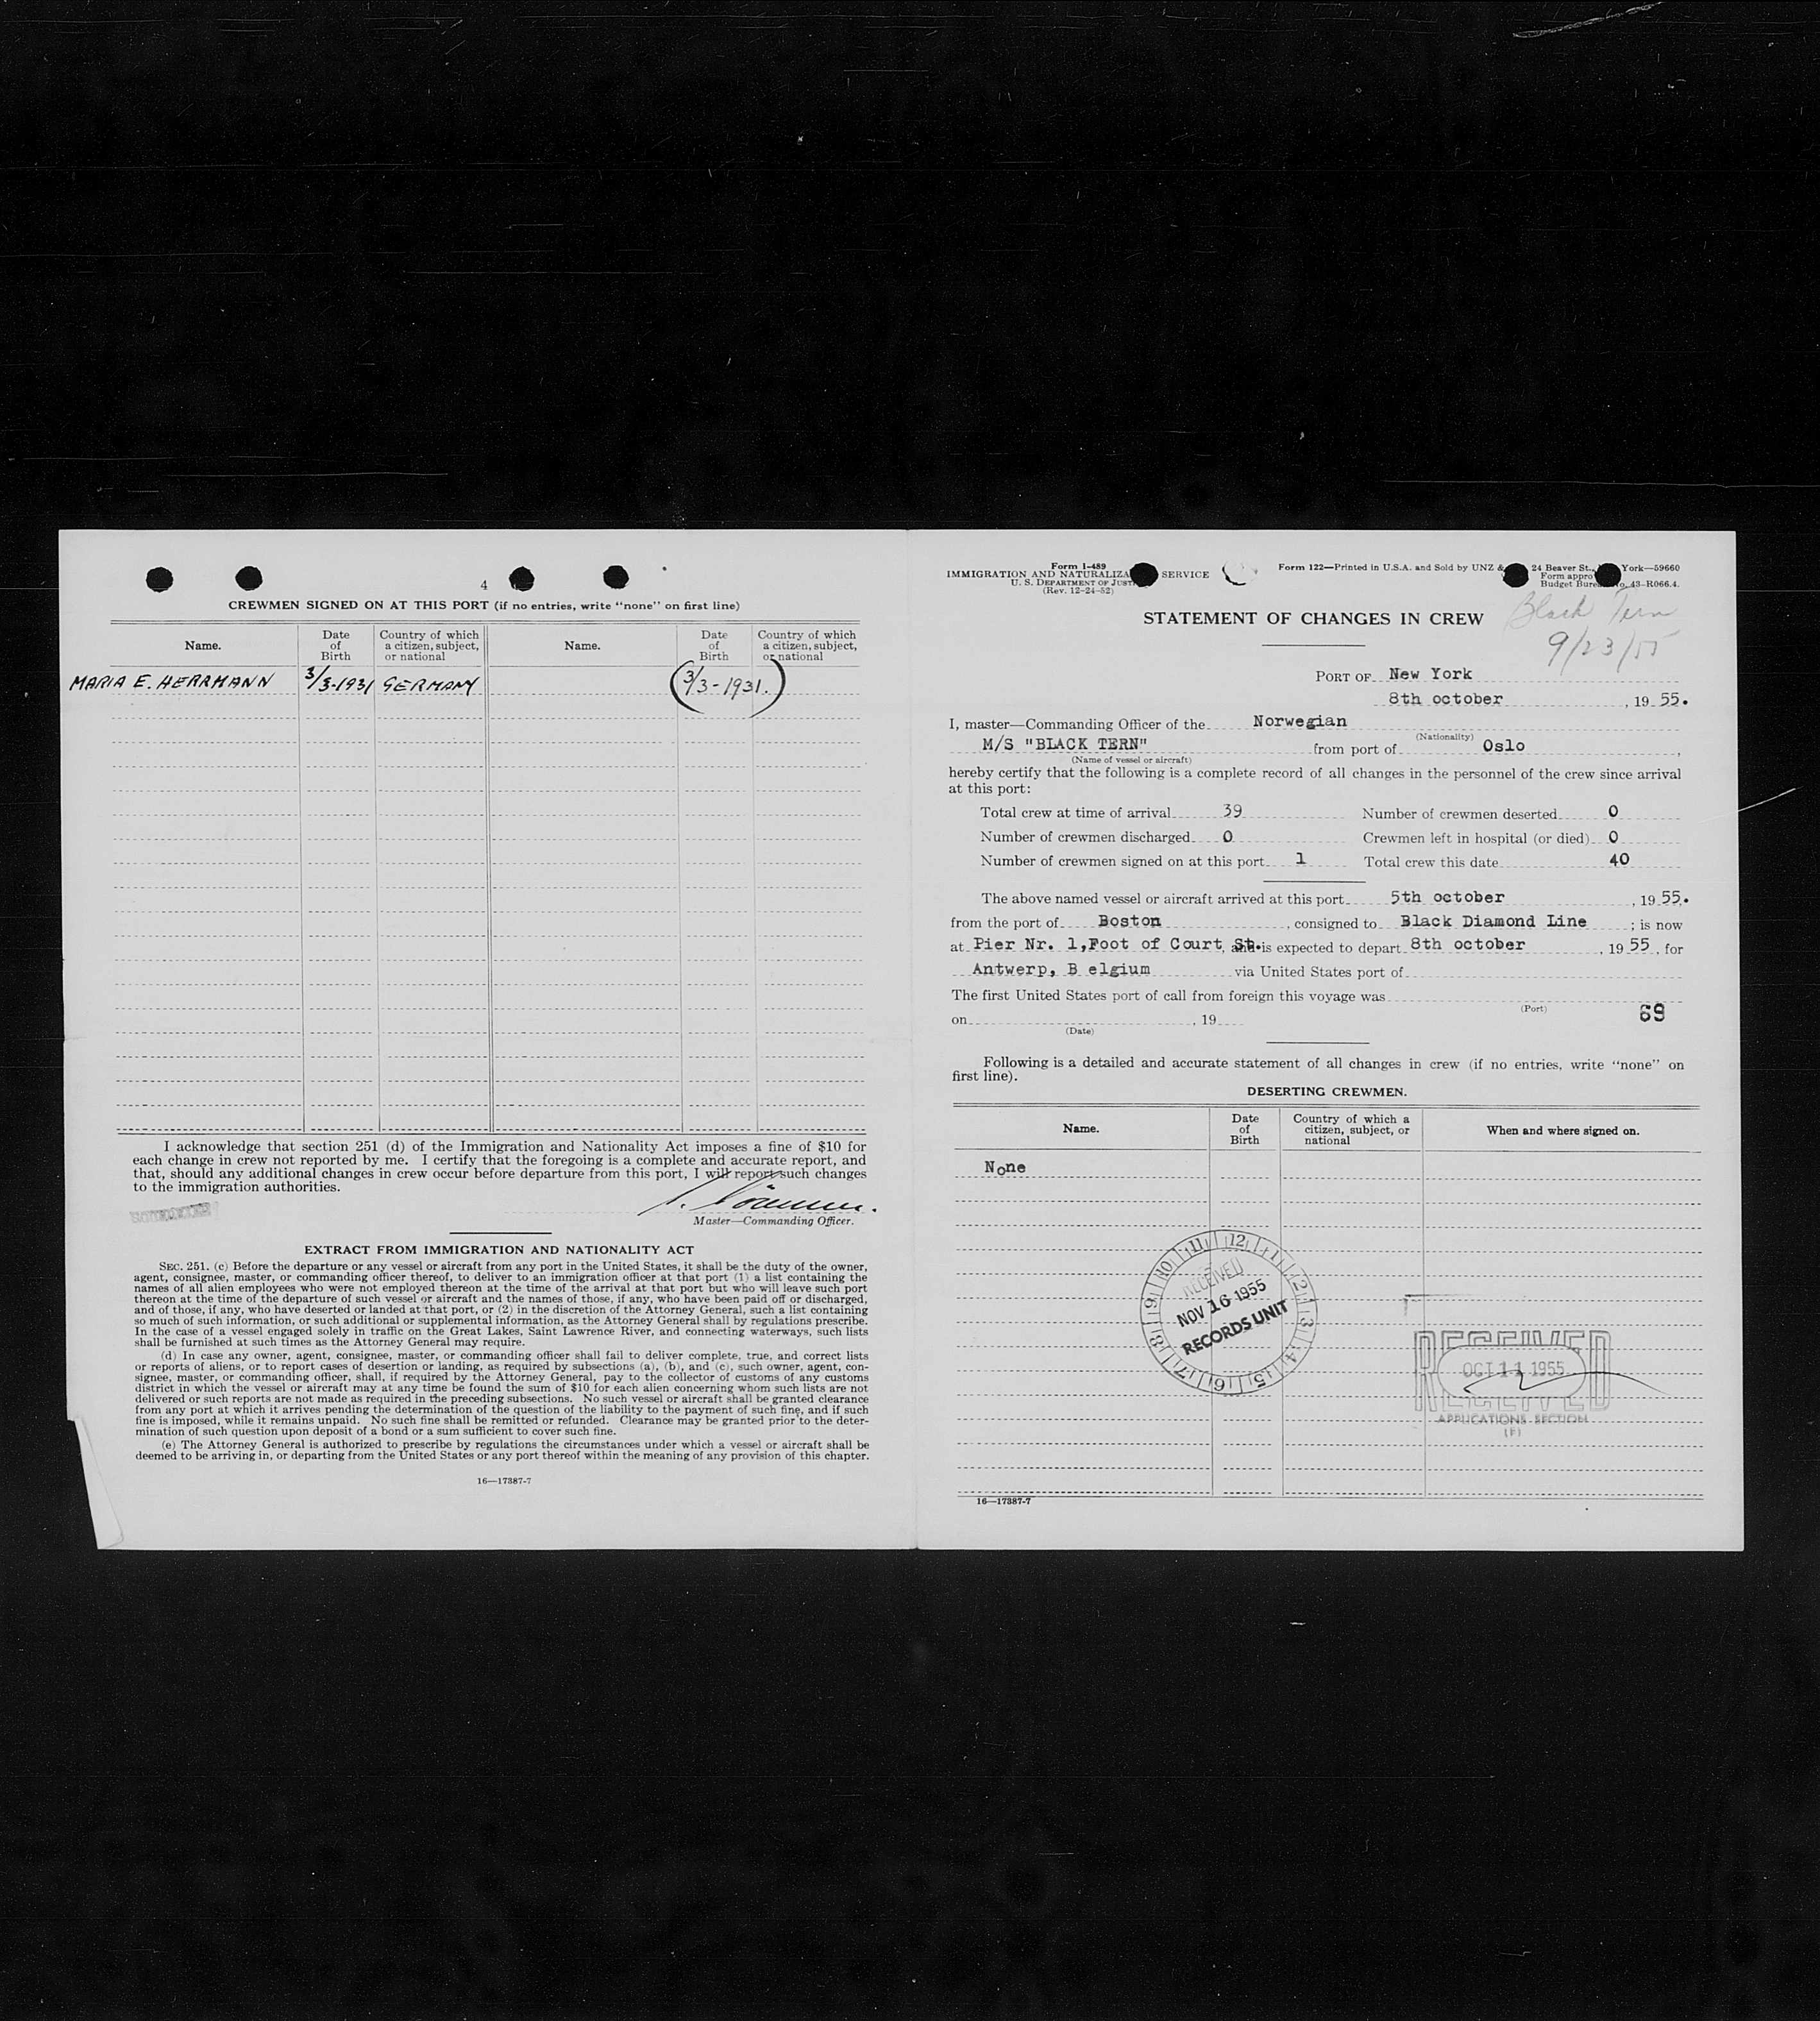 4
CREWMEN SIGNED ON AT THIS PORT (if no entries, write “none” on first line)
Name. Date of Birth Country of which a citizen, subject, or national Name. Date of Birth Country of which a citizen, subject, or national
MARIA E. HERRMANN 3/3-1931 GERMANY (3/3-1931.)
I acknowledge that section 251 (d) of the Immigration and Nationality Act imposes a fine of $10 for
each change in crew not reported by me. I certify that the foregoing is a complete and accurate report, and
that, should any additional changes in crew occur before departure from this port, I will report such changes
to the immigration authorities.
Master—Commanding Officer.
EXTRACT FROM IMMIGRATION AND NATIONALITY ACT
SEC. 251. (c) Before the departure or any vessel or aircraft from any port in the United States, it shall be the duty of the owner,
agent, consignee, master, or commanding officer thereof, to deliver to an immigration officer at that port (1) a list containing the
names of all alien employees who were not employed thereon at the time of the arrival at that port but who will leave such port
thereon at the time of the departure of such vessel or aircraft and the names of those, if any, who have been paid off or discharged,
and of those, if any, who have deserted or landed at that port, or (2) in the discretion of the Attorney General, such a list containing
so much of such information, or such additional or supplemental information, as the Attorney General shall by regulations prescribe.
In the case of a vessel engaged solely in traffic on the Great Lakes, Saint Lawrence River, and connecting waterways, such lists
shall be furnished at such times as the Attorney General may require.
(d) In case any owner, agent, consignee, master, or commanding officer shall fail to deliver complete, true, and correct lists
or reports of aliens, or to report cases of desertion or landing, as required by subsections (a), (b), and (c), such owner, agent, con-
signee, master, or commanding officer, shall, if required by the Attorney General, pay to the collector of customs of any customs
district in which the vessel or aircraft may at any time be found the sum of $10 for each alien concerning whom such lists are not
delivered or such reports are not made as required in the preceding subsections. No such vessel or aircraft shall be granted clearance
from any port at which it arrives pending the determination of the question of the liability to the payment of such fine, and if such
fine is imposed, while it remains unpaid. No such fine shall be remitted or refunded. Clearance may be granted prior to the deter-
mination of such question upon deposit of a bond or a sum sufficient to cover such fine.
(e) The Attorney General is authorized to prescribe by regulations the circumstances under which a vessel or aircraft shall be
deemed to be arriving in, or departing from the United States or any port thereof within the meaning of any provision of this chapter.
16—17387-7
Form I-489
IMMIGRATION AND NATURALIZA SERVICE
U. S. DEPARTMENT OF JUST
(Rev. 12-24-52)
Form 122—Printed in U.S.A. and Sold by UNZ & 24 Beaver St., York—59660
Form appro
Budget Bure No. 43-R066.4.
Black Tern
9/23/55
STATEMENT OF CHANGES IN CREW
PORT OF New York
8th october, 19 55.
I, master—Commanding Officer of the Norwegian
(Nationality)
M/S "BLACK TERN" from port of Oslo,
(Name of vessel or aircraft)
hereby certify that the following is a complete record of all changes in the personnel of the crew since arrival
at this port:
Total crew at time of arrival 39 Number of crewmen deserted 0
Number of crewmen discharged 0 Crewmen left in hospital (or died) 0
Number of crewmen signed on at this port 1 Total crew this date 40
The above named vessel or aircraft arrived at this port 5th october, 19 55.
from the port of Boston, consigned to Black Diamond Line; is now
at Pier Nr. 1,Foot of Court St. and is expected to depart 8th october, 19 55, for
Antwerp, B elgium via United States port of
The first United States port of call from foreign this voyage was
(Port)
69
on , 19
(Date)
Following is a detailed and accurate statement of all changes in crew (if no entries, write “none” on
first line).
DESERTING CREWMEN.
Name. Date of Birth Country of which a citizen, subject, or national When and where signed on.
None
11 12 1 2 3 4 5 6 7 8 9 10
RECEIVED
NOV 16 1955
RECORDS UNIT
RECEIVED
OCT 11 1955
RECEIVED
APPLICATIONS SECTION
16—17387-7